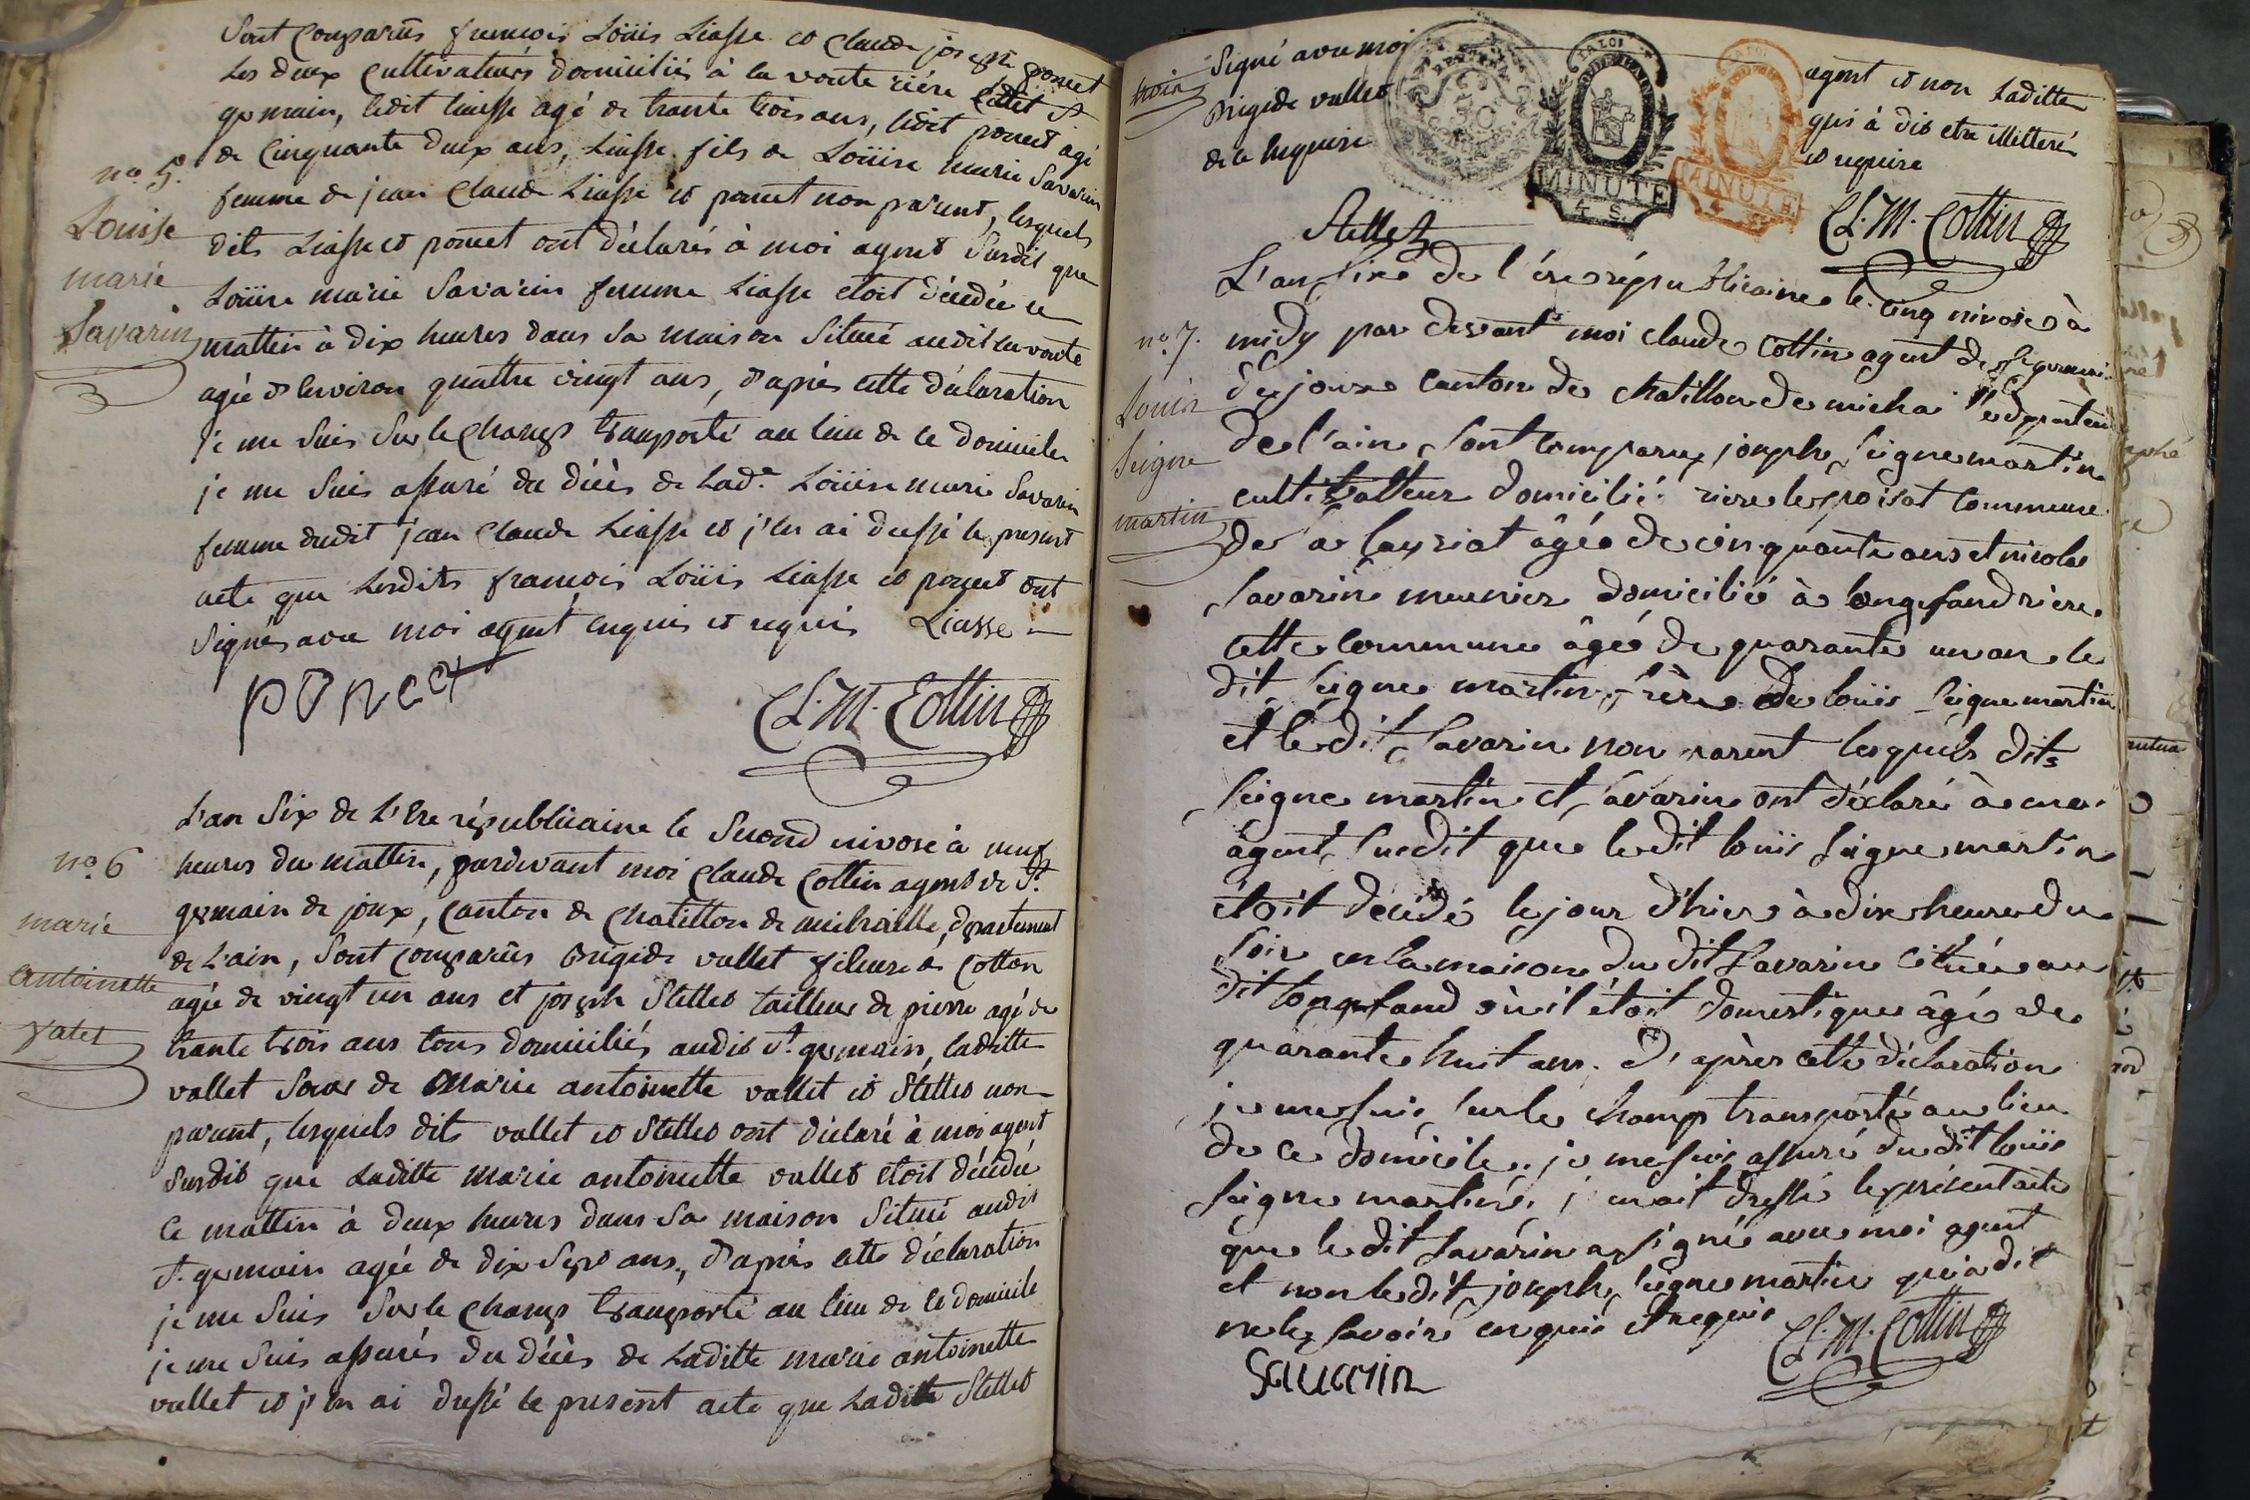 Sont comparûs francois Löüis Liasse et Claude joseph ponnet
les deux cultivateurs domiciliés à la voute riére cette St
germain, ledit liasse agé de trante trois ans, ledit ponnet agé
de Cinquante deux ans, Liasse fils de Loüise marie Savarin
no. 5.
femme de jean Claude Liasse et ponnet non parent, lesquels
Louise
marie
Savarin
dits Liasse et ponnet ont déclarés à moi agent Susdit que
Loüise marie Savarin femme Liasse etoit décedée ce
mattin à dix heures dans Sa maison Situé audit la voute
agée d'environ quattre vingt ans, d'après cette déclaration
je me Suis Sur le Champ transporté au lieu de ce domicile
je me Suis assuré du décès de Lad.e Loüise marie Savarin
femme dudit jean Claude Liasse et j'en ai dressé le présent
acte que Lesdits francois Loüis Liasse et ponnet ont
Signés avec moi agent enquis et requis Liasse
poncet
Cl. M. Cottin
L'an Six de L'Ere républicaine le Second nivose à neuf
no. 6
heures du mattin, pardevant moi Claude Cottin agent de St.
germain de joux, Canton de Chatillon de michaille, département
marie
antoinette
Valet
de L'ain, Sont Comparûs Brigide vallet fileuse de Cotton
agée de vingt un ans et joseph Stellet tailleur de pierre agé de
trante trois ans tous domiciliés audit St. germain, laditte
vallet Sœur de Marie antoinette vallet et Stellet non
parent, lesquels dits vallet et Stellet ont déclaré à moi agent
Susdit que Laditte Marie antoinette vallet etoit décédée
Ce mattin à deux heures dans Sa maison Situé audit
St. germain agée de dix Sept ans, d'après cette déclaration
je me Suis Sur le Champ transporté au lieu de ce domicile
je me Suis assurés du décès de Laditte marie antoinette
vallet et j'en ai dressé le présent acte que Laditte Stellet
trois
Signé avec moi agent et non Laditte
Brigide vallet qui à dit etre illitteré
de ce enquise et requise
LA LOI
MINUTE
4 S.
LA LOI
MINUTE
4 S.
Stellet
Cl. M. Cottin
L'an Sixe de l'ére républicaine le cinq nivose à
no. 7.
midy par devant moi claude cottin agent de St germain
Louis
Seigne
martin
de joux canton de chatillon de michai lle département
de l'ain, Sont comparu joseph Seigne martin
cultivatteur domicilié riere le poisat commune
de la leyriat âgé de cinquante ans et nicolas
Savarin meunier domicilié à longefand riere
cette commune âgé de quarante un an le
dit Seigne martin frère de loüis Seigne martin
et le dit Savarin non parent lesquels dits
Seigne martin et Savarin ont déclaré à moi
agent Susdit que le dit loüis Seigne martin
étoit décédé le jour d'hier à dix heure du
Soir en la maison du dit Savarin citué au
dit longefand où il étoit domestique âgé de
quarante huit ans. D'après cette déclaration
je me suis Sur le champ transporté au lieu
de ce domicile, je me suis assuré du dit loüis
Seigne martin, j'en ait dressé le présent acte
que le dit Savarin a Signé avec moi agent
et non le dit joseph Seigne martin qui a dit
ne le Savoir enquis et requis
Cl. M. Cottin
Sauarin